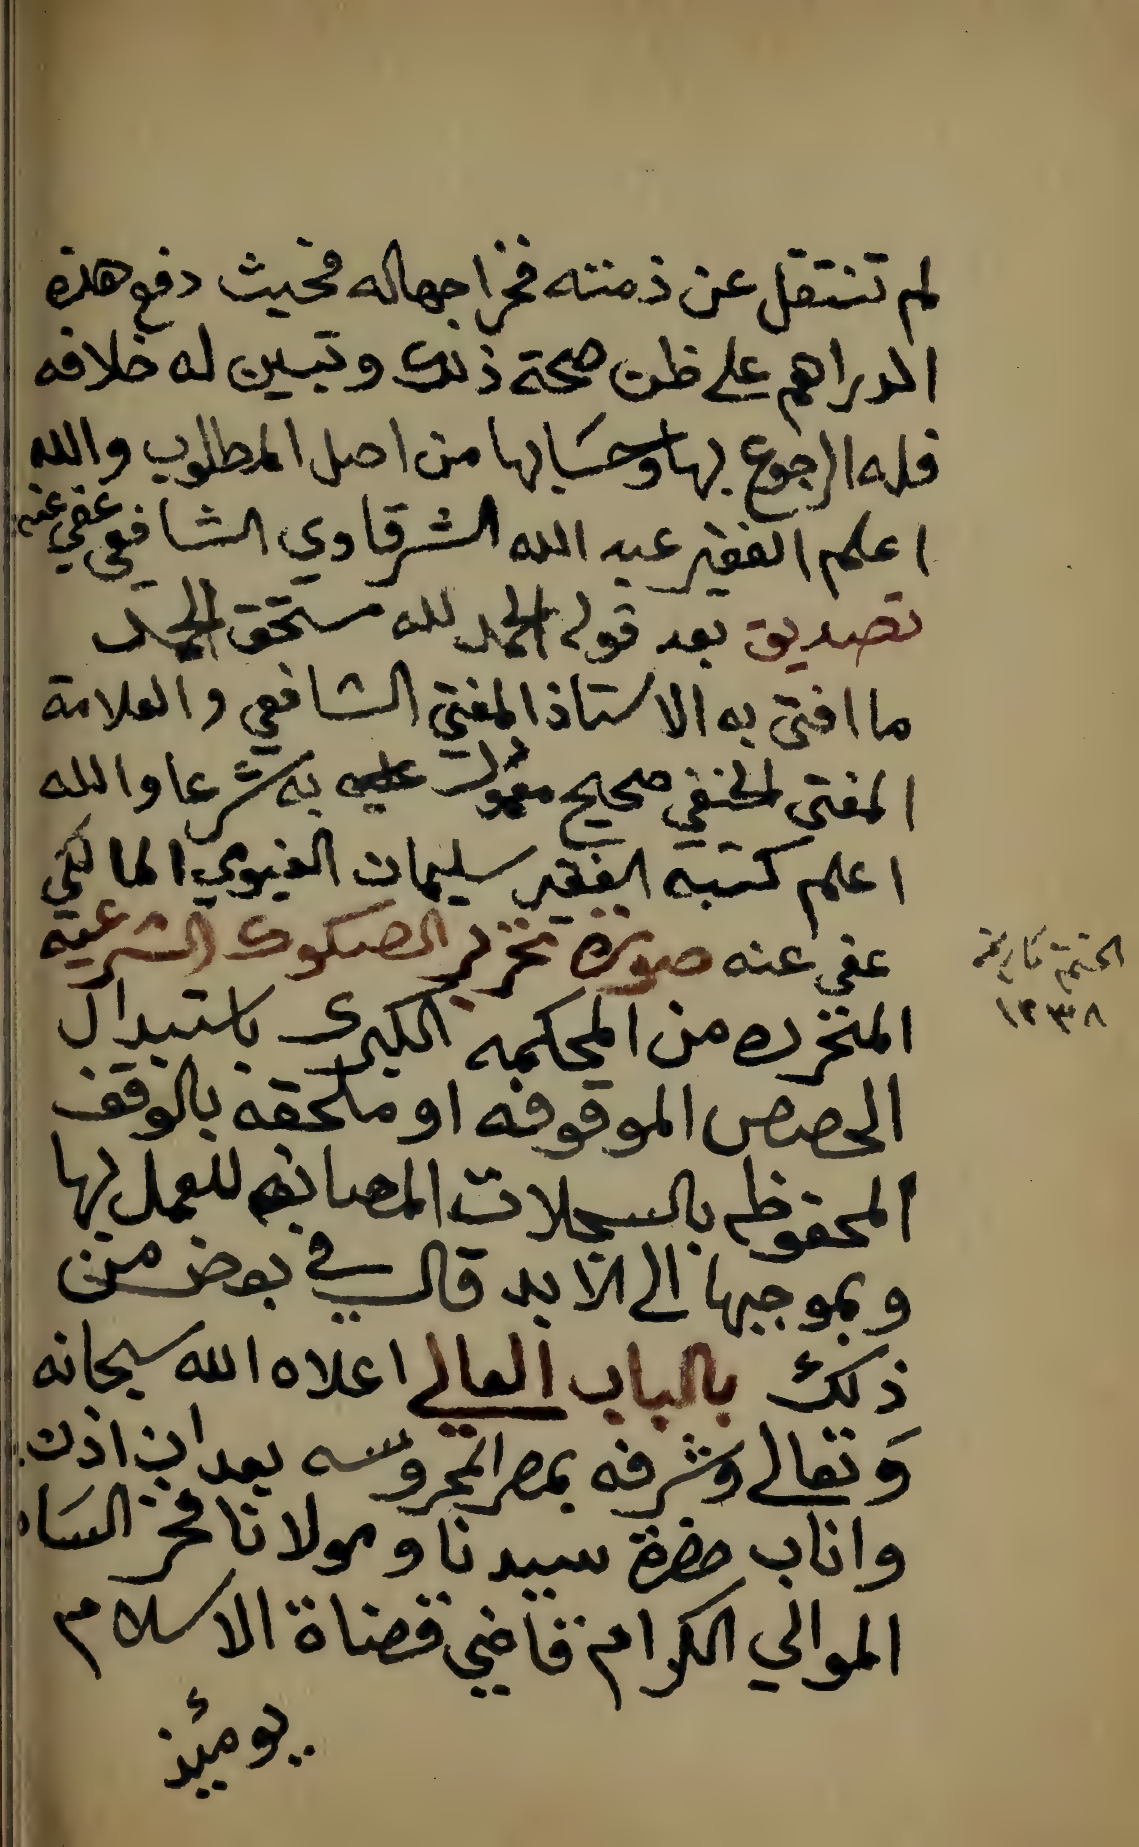 لم تنتقل عن ذمته فخراجها له فحيث دفع هذه
الدراهم على ظن صحة ذلك وتبين له خلافه
فله الرجوع بها وحسابها من اصل المطلوب والله
اعلم الفقير عبد الله الشرقاوي الشافعي عفي عنه
تصديق بعد قوله الحمد لله مستحق الحمد
ما افتى به الاستاذ المفتي الشافعي والعلامة
المفتى الحنفي صحيح معول عليه به شرعا والله
اعلم كتبه الفقير سليمان الفيومي المالكي
عفي عنه صورة تحرير الصكوك الشرعية
المتحرره من المحكمه الكبرى باستبدال
الحصص الموقوفه او ملحقه بالوقف
المحفوظه بالسجلات المصانه للعمل بها
وبموجبها الى الابد قال في بعض من
ذلك بالباب العالي اعلاه الله سبحانه
وتعالى وشرفه بمصر المحروسه بعد ان اذن
واناب حضرة سيدنا ومولانا فخر الساده
الموالي الكرام قاضي قضاة الاسلام
يومئذ
الختم تاريخه
١٢٣٨